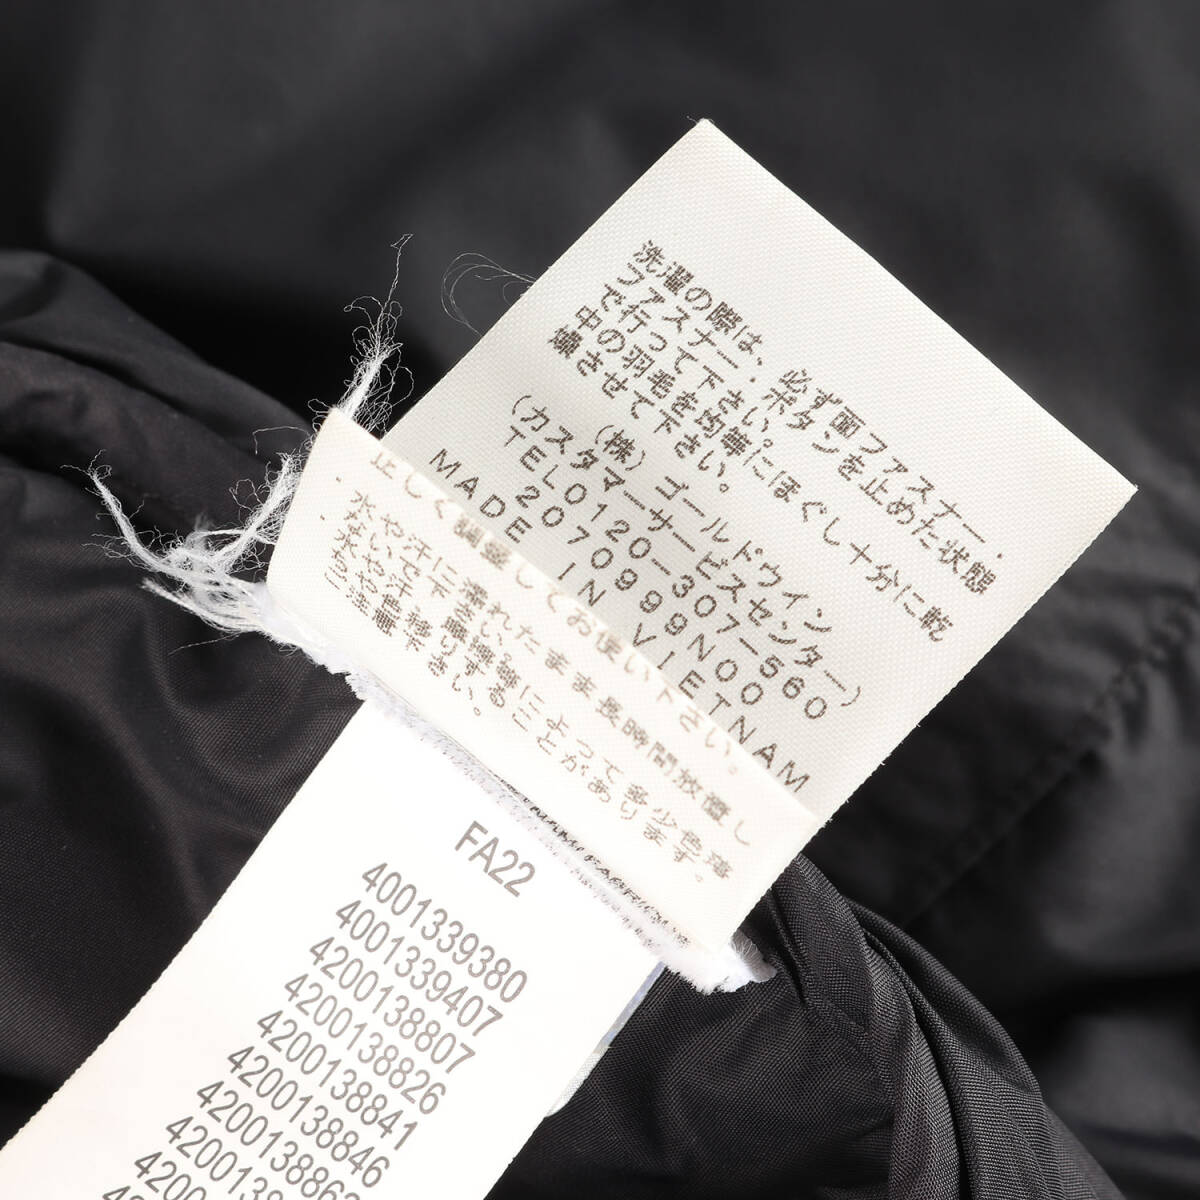 洗濯の際は、必ず面ファスナー・
ファスナー・ボタンを止めた状態
で行って下さい。
中の羽毛を均等にほぐし十分に乾
燥させて下さい。
(株)ゴールドウイン
(カスタマーサービスセンター)
TEL0120-307-560
2070999N00
MADE IN VIETNAM
正しく調整してお使い下さい。
・水や汗に濡れたまま長時間放置し
ないで下さい。
・水や汗、摩擦等によって多少色落
ち、色移りすることがあります。
ご注意下さい。
FA22
4001339380
4001339407
4200138807
4200138826
4200138841
4200138846
420013886